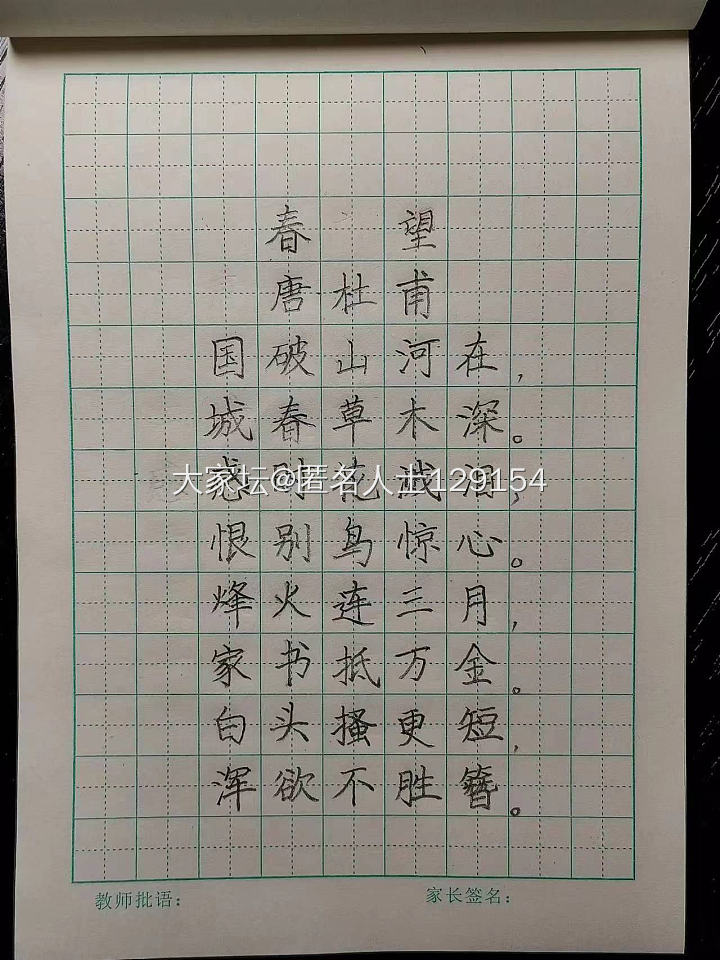 春望
唐杜甫
国破山河在，
城春草木深。
感时花溅泪，
大家坛@匿名人士129154
恨别鸟惊心。
烽火连三月，
家书抵万金。
白头搔更短，
浑欲不胜簪。
教师批语：
家长签名：